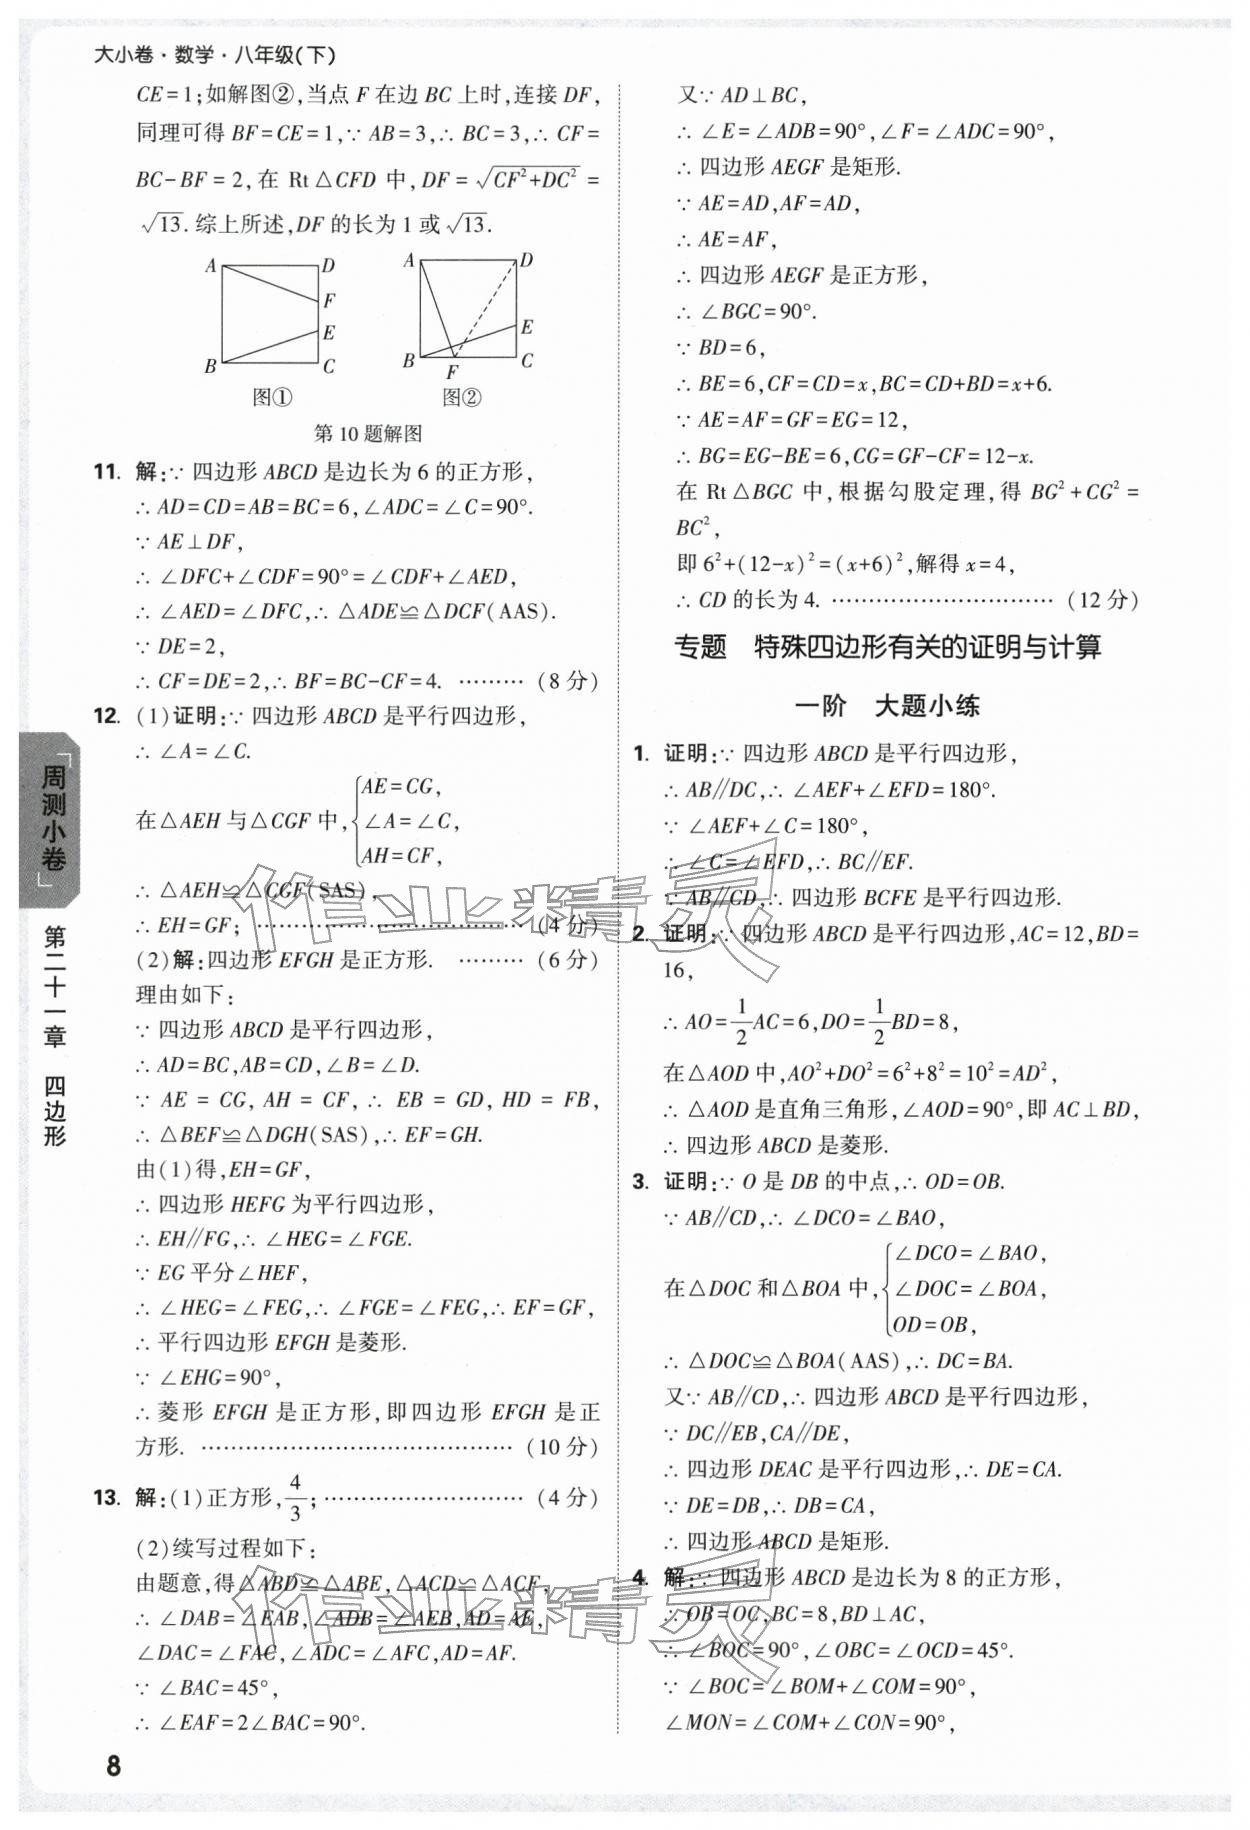 大小卷·数学·八年级(下)
CE=1;如解图②,当点 F 在边 BC 上时,连接 DF,
同理可得 BF=CE=1,∵ AB=3,∴ BC=3,∴ CF=
BC-BF=2,在 Rt△CFD 中,DF=√(CF²+DC²)=
√13.综上所述,DF 的长为 1 或√13.
A D F E B C
A D E B F C
图① 图②
第 10 题解图
11. 解:∵ 四边形 ABCD 是边长为 6 的正方形,
∴ AD=CD=AB=BC=6,∠ADC=∠C=90°.
∵ AE⊥DF,
∴ ∠DFC+∠CDF=90°=∠CDF+∠AED,
∴ ∠AED=∠DFC,∴ △ADE≌△DCF(AAS).
∵ DE=2,
∴ CF=DE=2,∴ BF=BC-CF=4. ……… (8 分)
12. (1)证明:∵ 四边形 ABCD 是平行四边形,
∴ ∠A=∠C.
在△AEH 与△CGF 中,{AE=CG,
∠A=∠C,
AH=CF,
∴ △AEH≌△CGF(SAS),
∴ EH=GF; ………………………………… (4 分)
(2)解:四边形 EFGH 是正方形. ……… (6 分)
理由如下:
∵ 四边形 ABCD 是平行四边形,
∴ AD=BC,AB=CD,∠B=∠D.
∵ AE = CG, AH = CF, ∴ EB = GD, HD = FB,
∴ △BEF≌△DGH(SAS),∴ EF=GH.
由(1)得,EH=GF,
∴ 四边形 HEFG 为平行四边形,
∴ EH∥FG,∴ ∠HEG=∠FGE.
∵ EG 平分∠HEF,
∴ ∠HEG=∠FEG,∴ ∠FGE=∠FEG,∴ EF=GF,
∴ 平行四边形 EFGH 是菱形.
∵ ∠EHG=90°,
∴ 菱形 EFGH 是正方形,即四边形 EFGH 是正
方形. …………………………………… (10 分)
13. 解:(1)正方形,4/3; ……………………… (4 分)
(2)续写过程如下:
由题意,得△ABD≌△ABE,△ACD≌△ACF,
∴ ∠DAB=∠EAB,∠ADB=∠AEB,AD=AE,
∠DAC=∠FAC,∠ADC=∠AFC,AD=AF.
∵ ∠BAC=45°,
∴ ∠EAF=2∠BAC=90°.
又∵ AD⊥BC,
∴ ∠E=∠ADB=90°,∠F=∠ADC=90°,
∴ 四边形 AEGF 是矩形.
∵ AE=AD,AF=AD,
∴ AE=AF,
∴ 四边形 AEGF 是正方形,
∴ ∠BGC=90°.
∵ BD=6,
∴ BE=6,CF=CD=x,BC=CD+BD=x+6.
∵ AE=AF=GF=EG=12,
∴ BG=EG-BE=6,CG=GF-CF=12-x.
在 Rt△BGC 中,根据勾股定理,得 BG²+CG²=
BC²,
即 6²+(12-x)²=(x+6)²,解得 x=4,
∴ CD 的长为 4. ………………………… (12 分)
专题 特殊四边形有关的证明与计算
一阶 大题小练
1. 证明:∵ 四边形 ABCD 是平行四边形,
∴ AB∥DC,∴ ∠AEF+∠EFD=180°.
∵ ∠AEF+∠C=180°,
∴ ∠C=∠EFD,∴ BC∥EF.
∵ AB∥CD,∴ 四边形 BCFE 是平行四边形.
2. 证明:∵ 四边形 ABCD 是平行四边形,AC=12,BD=
16,
∴ AO=1/2AC=6,DO=1/2BD=8,
在△AOD 中,AO²+DO²=6²+8²=10²=AD²,
∴ △AOD 是直角三角形,∠AOD=90°,即 AC⊥BD,
∴ 四边形 ABCD 是菱形.
3. 证明:∵ O 是 DB 的中点,∴ OD=OB.
∵ AB∥CD,∴ ∠DCO=∠BAO,
在△DOC 和△BOA 中,{∠DCO=∠BAO,
∠DOC=∠BOA,
OD=OB,
∴ △DOC≌△BOA(AAS),∴ DC=BA.
又∵ AB∥CD,∴ 四边形 ABCD 是平行四边形,
∵ DC∥EB,CA∥DE,
∴ 四边形 DEAC 是平行四边形,∴ DE=CA.
∵ DE=DB,∴ DB=CA,
∴ 四边形 ABCD 是矩形.
4. 解:∵ 四边形 ABCD 是边长为 8 的正方形,
∴ OB=OC,BC=8,BD⊥AC,
∴ ∠BOC=90°,∠OBC=∠OCD=45°.
∵ ∠BOC=∠BOM+∠COM=90°,
∠MON=∠COM+∠CON=90°,
周测小卷
第二十一章 四边形
8
作业精灵
作业精灵